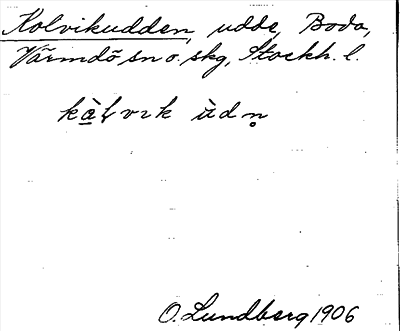 Kolvikudden, udde, Boda,
Värmdö sn o. skg, Stockh. l.
kàłvɪk ùdn̥
O. Lundberg 1906